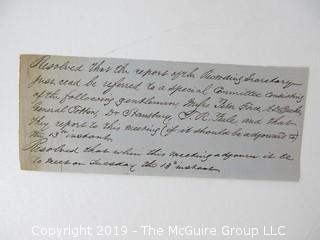 Resolved that the report of the Recording Secretary
just read be referred to a Special Committee consisting
of the following gentlemen, Peter Force,
General Totten, Dr. Stansbury, and that
they report to this meeting (if it should be adjourned to)
the 13th instant.
Resolved that when this meeting adjourn it be
to meet on Tuesday the 13th instant
Copyright © 2019 - The McGuire Group, LLC